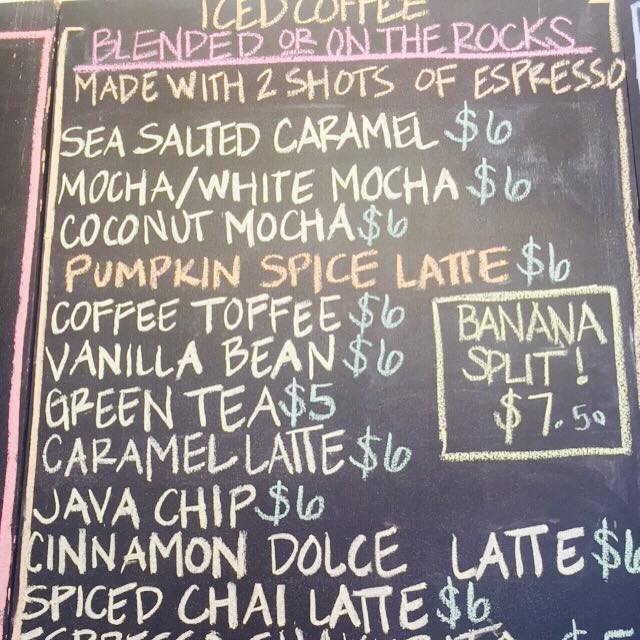 ICED COFFEE
BLENDED OR ON THE ROCKS
MADE WITH 2 SHOTS OF ESPRESSO
SEA SALTED CARAMEL $6
MOCHA/WHITE MOCHA $6
COCONUT MOCHA $6
PUMPKIN SPICE LATTE $6
COFFEE TOFFEE $6
VANILLA BEAN $6
GREEN TEA $5
CARAMEL LATTE $6
JAVA CHIP $6
CINNAMON DOLCE LATTE $6
SPICED CHAI LATTE $6
ESPRESSO
BANANA
SPLIT!
$7.50